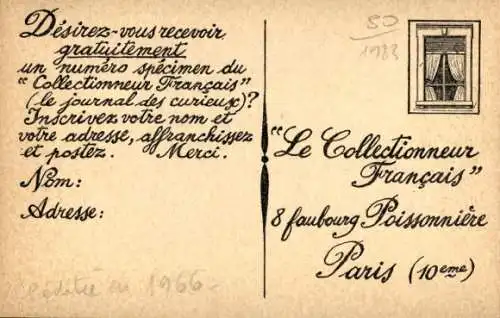 Désirez-vous recevoir
gratuitement
un numéro spécimen du
"Collectionneur Français"
(le journal des curieux)?
Inscrivez votre nom et
votre adresse, affranchissez
et postez. Merci.
Nom:
Adresse:
en 1966
50
1983
"Le Collectionneur
Français"
8 faubourg Poissonnière
Paris (10eme)